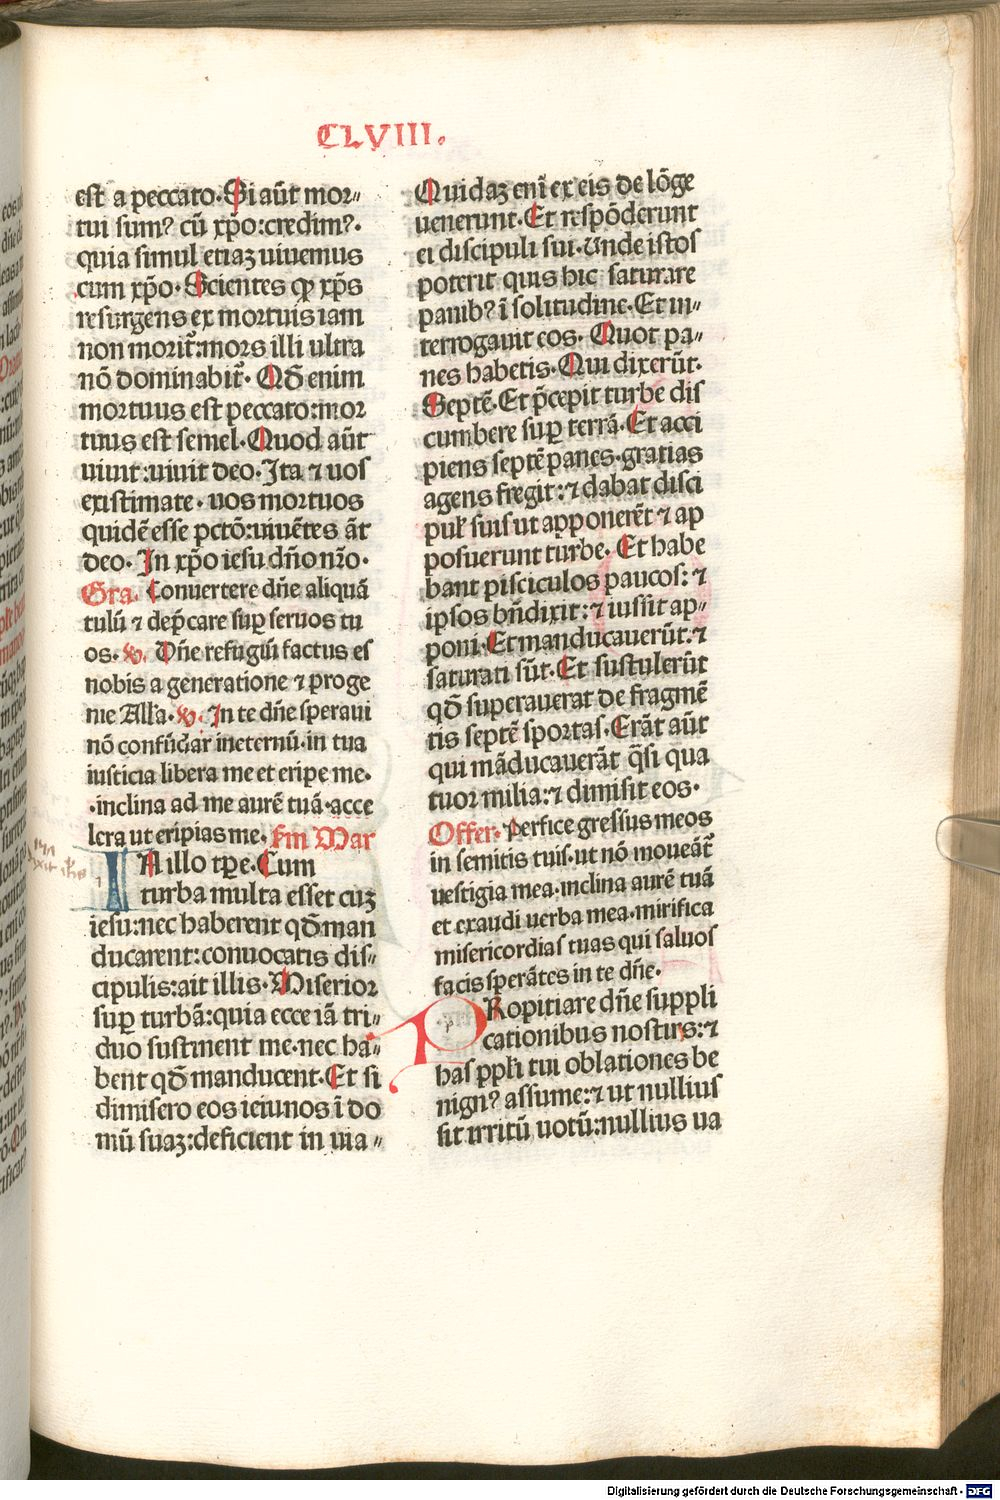 CLVIII.
est a peccato. Si aūt mor⸗
tui sumꝰ cū xp̄o: credimꝰ.
quia simul etiaꝫ uiuemus
cum xp̄o. Scientes ꝙ xp̄s
resurgens ex mortuis iam
non morit᷑: mors illi ultra
nō dominabit᷑. Qd̄ enim
mortuus est peccato: mor
tuus est semel. Quod aūt
uiuit: uiuit deo. Ita ⁊ uos
existimate. uos mortuos
quidē esse pctō: uiuētes āt
deo. In xp̄o iesu dn̄o nr̄o.
Gra. Conuertere dn̄e aliquā
tulū ⁊ dep̄care suꝑ seruos tu
os. v. Dn̄e refugiū factus es
nobis a generatione ⁊ proge
nie Alła. v. In te dn̄e speraui
nō confūdar ineternū. in tua
iusticia libera me et eripe me.
.inclina ad me aurē tuā. acce
lera ut eripias me. s̄m Mar
IN illo tp̄e. Cum
turba multa esset cuꝫ
iesu: nec haberent qd̄ man
ducarent: conuocatis dis⸗
cipulis: ait illis. Miserior
suꝑ turbā: quia ecce iā tri⸗
duo sustinent me. nec ha⸗
bent qd̄ manducent. Et si
dimisero eos ieiunos ī do
mū suaꝫ: deficient in uia⸗
Quidaꝫ enī ex eis de lōge
uenerunt. Et respōderunt
ei discipuli sui. Unde istos
poterit quis hic saturare
panibꝰ ī solitudine. Et in⸗
terrogauit eos. Quot pa⸗
nes habetis. Qui dixerūt.
Septē. Et p̄cepit turbe dis
cumbere suꝑ terrā. Et acci
piens septē panes. gratias
agens fregit: ⁊ dabat disci
puł suis ut apponerēt ⁊ ap
posuerunt turbe. Et habe
bant pisciculos paucos: ⁊
ipsos bn̄dixit: ⁊ iussit ap⸗
poni. Et manducauerūt. ⁊
saturati sūt. Et sustulerūt
qd̄ superauerat de fragmē
tis septē sportas. Erāt aūt
qui māducauerāt q̄si qua
tuor milia: ⁊ dimisit eos.
Offer. Perfice gressus meos
in semitis tuis. ut nō moueāt᷑
uestigia mea. inclina aurē tuā
et exaudi uerba mea. mirifica
misericordias tuas qui saluos
facis sperātes in te dn̄e.
PRopitiare dn̄e suppli
cationibus nostris: ⁊
has ppłi tui oblationes be
nignꝰ assume: ⁊ ut nullius
sit irritū uotū: nullius ua
Digitalisierung gefördert durch die Deutsche Forschungsgemeinschaft - DFG